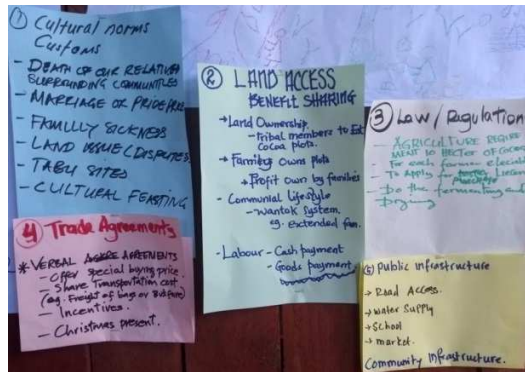 ① Cultural norms
Customs
- DEATH OF OUR RELATIVES
SURROUNDING COMMUNITIES
- MARRIAGE OR PRIDE
- FAMILLY SICKNESS
- LAND ISSUE (DISPUTES
- TABU SITES
- CULTURAL FEASTING
4 Trade Agreements
* VERBAL AGREEMENTS
- Offer special buying price.
- Share Transportation cost
(eg. Freight of bags or
- Incentives.
- Christmas present.
② LAND ACCESS
BENEFIT SHARING
→ Land Ownership
- Tribal members to Est
Cocoa plots.
→ Family owns plots
→ Profit own by families
- Communal lifestyle
- Wantok System.
eg. extended fam.
- Labour - Cash payment
- Goods payment
③ Law / Regulation
- AGRICULTURE
HECTER OF COCOA
For each farmer
- To Apply for
- Do the fermenting and
Drying
⑤ Public Infrastructure
→ Road Access.
→ Water Supply
→ School
→ market.
Community Infrastructure.